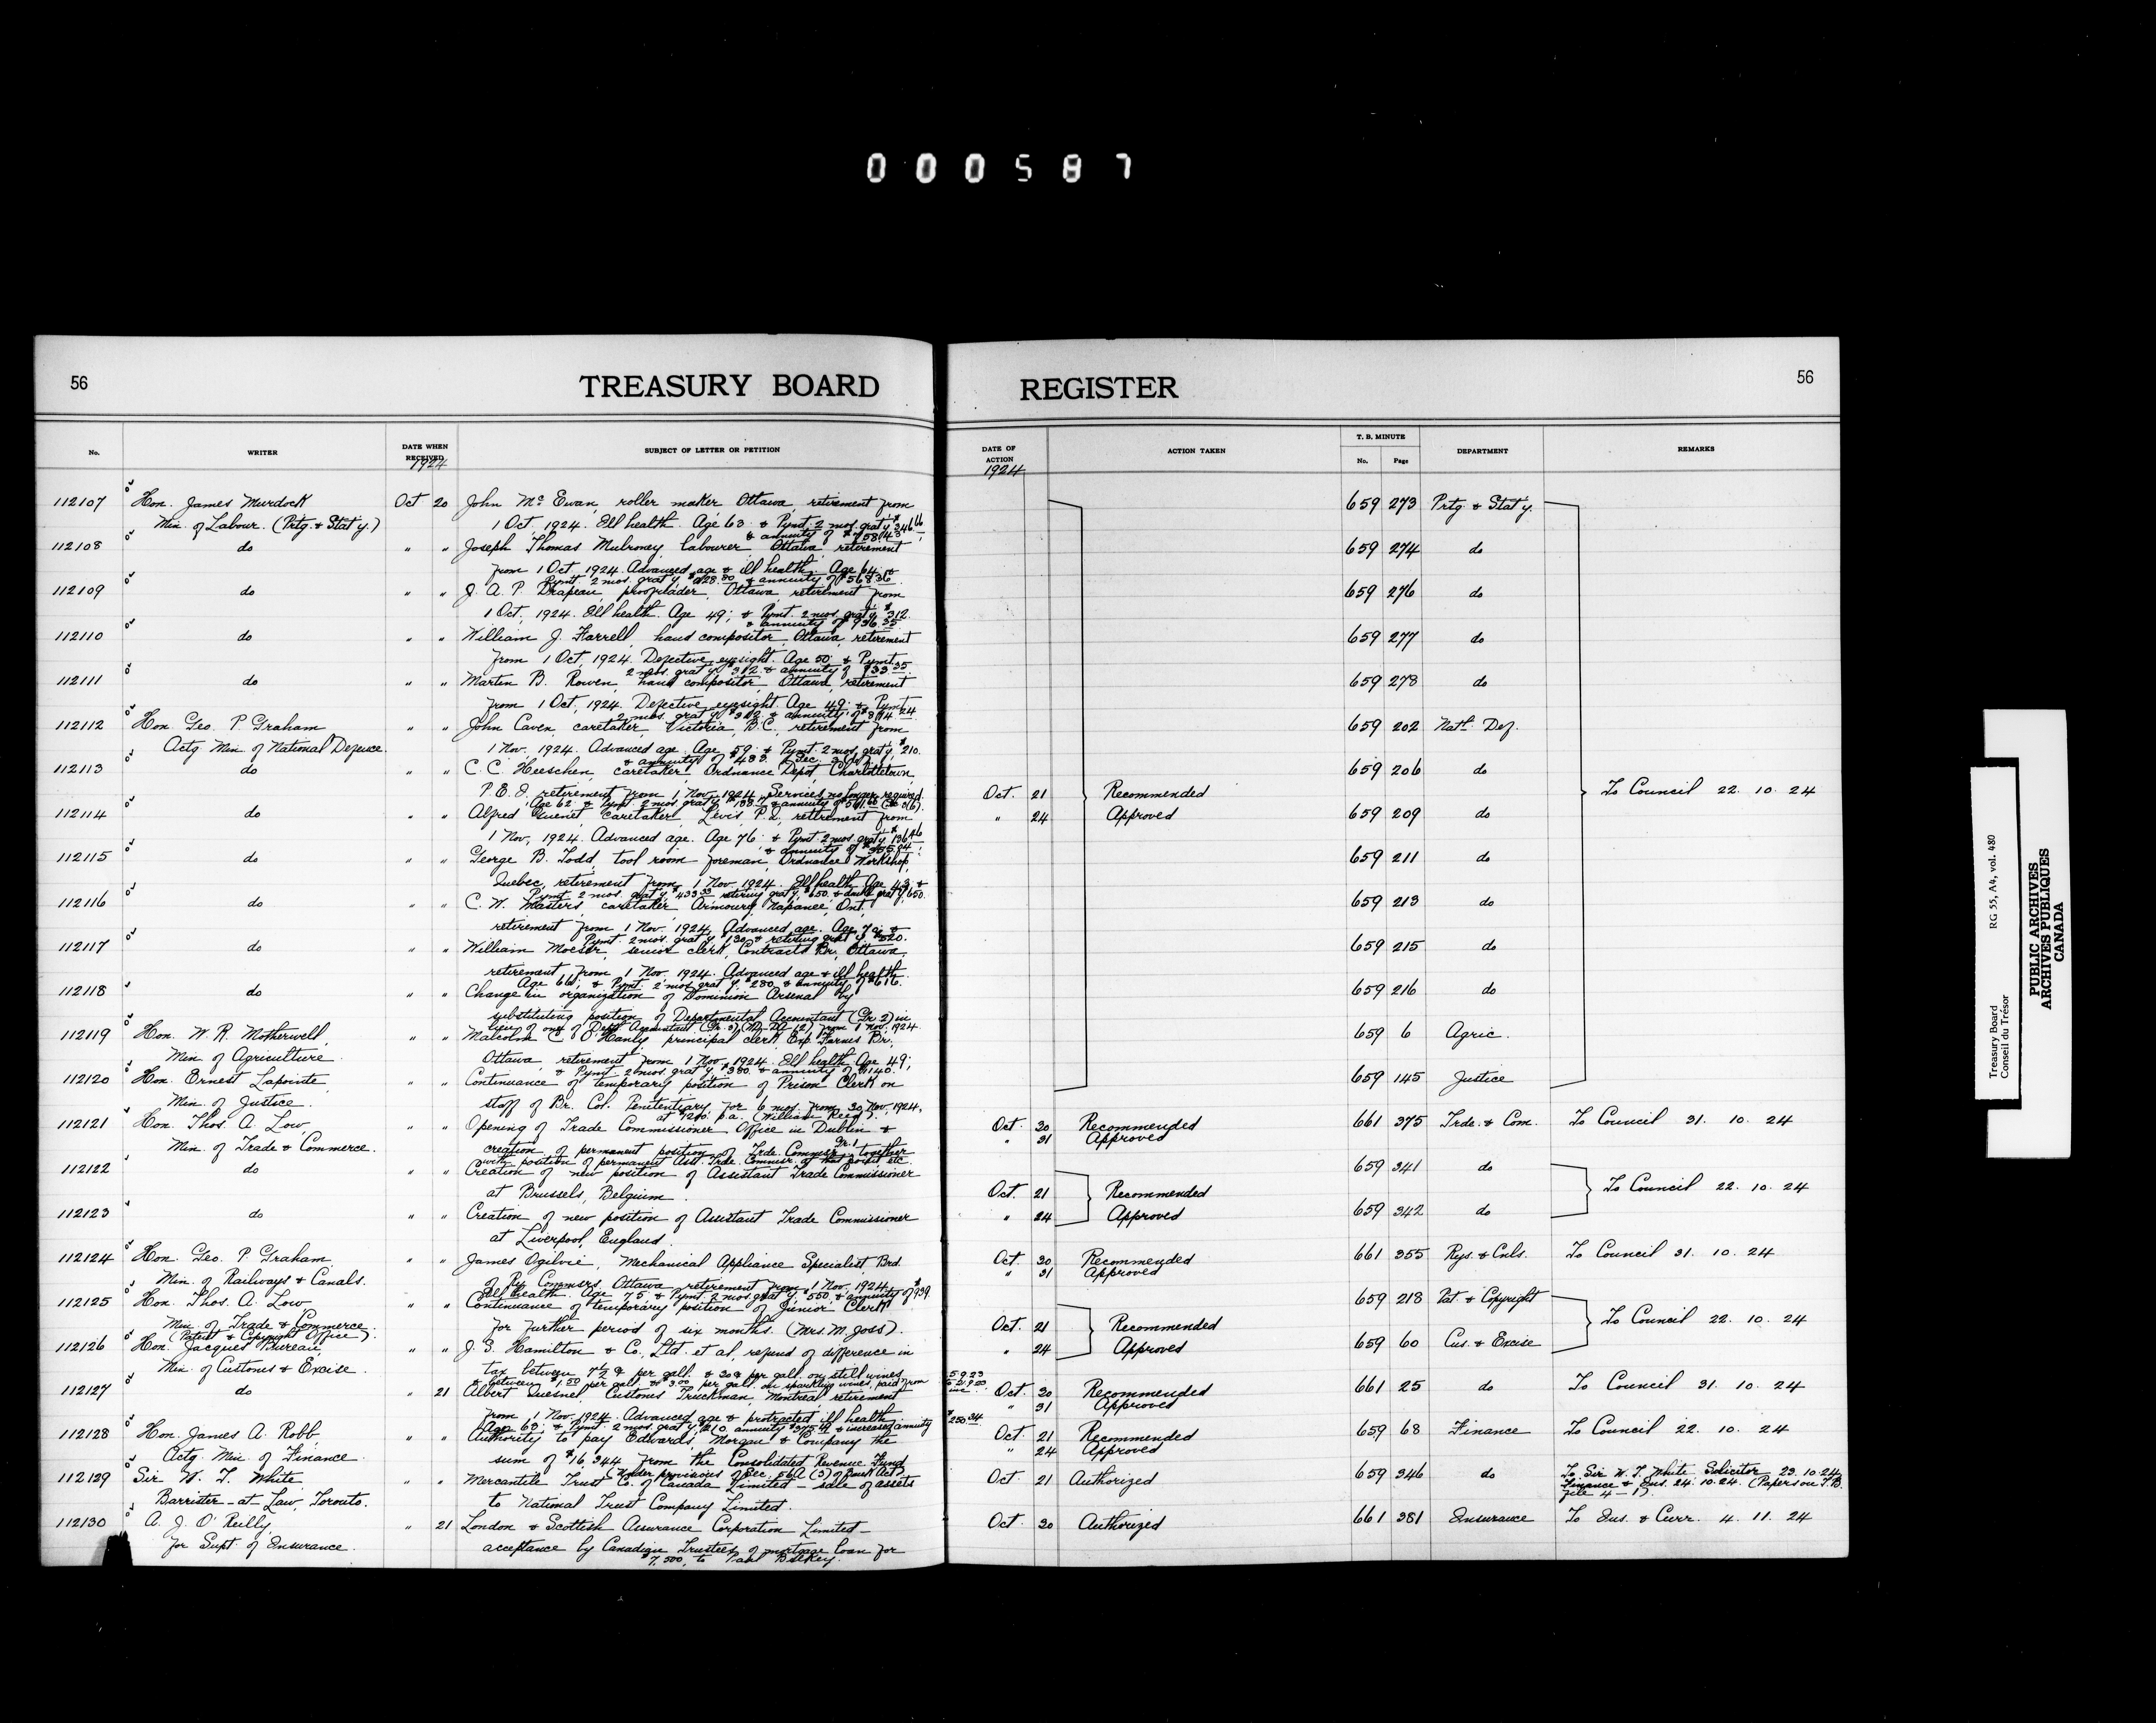 000587
56
TREASURY BOARD
REGISTER
56
No.
WRITER
DATE WHEN RECEIVED
1924
SUBJECT OF LETTER OR PETITION
DATE OF ACTION
1924
ACTION TAKEN
T. B. MINUTE
No.
Page
DEPARTMENT
REMARKS
112107 Hon. James Murdock Oct 20 John McEwan, roller maker Ottawa, retirement from 659 273 Prtg. & Stat'y.
Min. of Labour. (Prtg. & Stat'y.) 1 Oct. 1924. Ill health. Age 63 & Pymt. 2 mos. grat'y.
& annuity of
112108 do " " Joseph Thomas Mulroney, labourer, Ottawa, retirement 659 274 do
from 1 Oct. 1924. Advanced age & ill health. Age 64; &
Pymt. 2 mos. grat'y. & annuity of
112109 do " " J. A. P. Drapeau, Ottawa, retirement from 659 276 do
1 Oct., 1924. Ill health. Age 49; & Pymt. 2 mos. grat'y. $312.
& annuity of
112110 do " " William J. Farrell, hand compositor, Ottawa, retirement 659 277 do
from 1 Oct, 1924. Defective eyesight. Age 50 & Pymt.
2 mos. grat'y. $312 & annuity of
112111 do " " Martin B. Rowen, hand compositor, Ottawa, retirement 659 278 do
from 1 Oct, 1924. Defective eyesight. Age 49; & Pymt.
2 mos. grat'y. $312. & annuity of
112112 Hon. Geo. P. Graham " " John Caven, caretaker, Victoria, B.C., retirement from 659 202 Natl. Def.
Actg. Min. of National Defence. 1 Nov. 1924. Advanced age. Age 59; & Pymt. 2 mos. grat'y. $210.
& annuity of $483.
112113 do " " C. C. Heeschen, caretaker, Ordnance Depot, Charlottetown, 659 206 do
P. E. I. retirement from 1 Nov. 1924. Services no longer required.
Age 62 & Pymt. 2 mos. grat'y. & annuity of
Oct. 21 Recommended To Council 22. 10. 24
112114 do " " Alfred Guenet, caretaker, Levis, P.Q., retirement from " 24 Approved 659 209 do
1 Nov, 1924. Advanced age. Age 76; & Pymt. 2 mos. grat'y.
& annuity of
112115 do " " George B. Todd, tool room foreman, Ordnance Workshop, 659 211 do
Quebec, retirement from 1 Nov. 1924. Ill health. Age 43; &
Pymt. 2 mos. grat'y. $433.33 retiring grat'y.
112116 do " " C. W. Masters, caretaker Armoury, Napanee, Ont., 659 213 do
retirement from 1 Nov. 1924. Advanced age. Age &
Pymt. 2 mos. grat'y. $130 & retiring grat'y. $520.
112117 do " " William Moeser, senior clerk, Contracts Br., Ottawa, 659 215 do
retirement from 1 Nov. 1924. Advanced age & ill health.
Age & Pymt. 2 mos. grat'y. $280. & annuity of $616.
112118 do " " Change in organization of Dominion Arsenal by 659 216 do
substituting position of Departmental Accountant (Gr. 2) in
lieu of one of Dept. Accountant (Gr. 3) from 1 Nov. 1924.
112119 Hon. W. R. Motherwell, " " Malcolm C. O'Hanly principal clerk Exp. Farms Br. 659 6 Agric.
Min. of Agriculture. Ottawa, retirement from 1 Nov. 1924. Ill health. Age 49;
& Pymt. 2 mos. grat'y. $380. & annuity of $1140.
112120 Hon. Ernest Lapointe, " " Continuance of temporary position of Prison Clerk on 659 145 Justice
Min. of Justice. staff of Br. Col. Penitentiary for 6 mos. from 30 Nov. 1924,
at $1200. p.a. (William Reed).
112121 Hon. Thos. A. Low, " " Opening of Trade Commissioner Office in Dublin & Oct. 30 Recommended 661 375 Trde. & Com. To Council 31. 10. 24
" 31 Approved
Min. of Trade & Commerce. creation of permanent position of Trde. Commsr. Gr. 1 together
with position of permanent Asst. Trde. Commsr. at that point etc.
112122 do " " Creation of new position of Assistant Trade Commissioner 659 341 do
at Brussels, Belgium. Oct. 21 Recommended To Council 22. 10. 24
112123 do " " Creation of new position of Assistant Trade Commissioner " 24 Approved 659 342 do
at Liverpool, England.
112124 Hon. Geo. P. Graham " " James Ogilvie, Mechanical Appliance Specialist, Brd. Oct. 30 Recommended 661 355 Rys. & Cnls. To Council 31. 10. 24
" 31 Approved
Min. of Railways & Canals. of Ry. Commsrs. Ottawa retirement from 1 Nov. 1924.
Ill health. Age 75 & Pymt. 2 mos. grat'y. $550, & annuity of $939.
112125 Hon. Thos. A. Low, " " Continuance of temporary position of Junior Clerk 659 218 Pat. & Copyright
Min. of Trade & Commerce for further period of six months. (Mrs. M. Joss). Oct. 21 Recommended To Council 22. 10. 24
(Patent & Copyright Office).
112126 Hon. Jacques Bureau, " " J. S. Hamilton & Co., Ltd. et al, refund of difference in " 24 Approved 659 60 Cus. & Excise
Min. of Customs & Excise. tax between 7½¢ per gall. & 30¢ per gall. on still wines
& between $1.50 per gall. & $3.00 per gall. on sparkling wines, paid from
112127 do " 21 Albert Quesnel, Customs Truckman, Montreal, retirement Oct. 30 Recommended 661 25 do To Council 31. 10. 24
" 31 Approved
from 1 Nov. 1924. Advanced age & protracted ill health.
Age 68; & Pymt. 2 mos. grat'y. $210. annuity & increased annuity $250.34
112128 Hon. James A. Robb " " Authority to pay Edwards, Morgan & Company the Oct. 21 Recommended 659 68 Finance To Council 22. 10. 24
" 24 Approved
Actg. Min. of Finance. sum of $16,344 from the Consolidated Revenue Fund
under provisions of Sec. 56A (3) of Bank Act).
112129 Sir W. T. White " " Mercantile Trust Co. of Canada Limited – sale of assets Oct. 21 Authorized 659 346 do To Sir W. T. White, Solicitor 23. 10. 24
Finance & Ins. 24. 10. 24. (Papers on T.B.
file 4 – 1).
Barrister-at-Law, Toronto. to National Trust Company Limited.
112130 A. J. O'Reilly " 21 London & Scottish Assurance Corporation Limited – Oct. 30 Authorized 661 381 Insurance To Ins. & Curr. 4. 11. 24
for Supt. of Insurance. acceptance by Canadian Trustees of mortgage loan for
$7,500, to Paul Bilkey.
Treasury Board RG 55, A4, vol. 480
Conseil du Trésor
PUBLIC ARCHIVES
ARCHIVES PUBLIQUES
CANADA